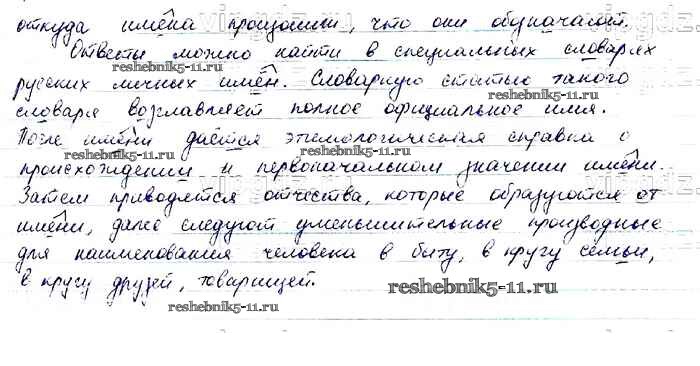 откуда имена произошли, что они обозначают.
Ответы можно найти в специальных словарях
reshebnik5-11.ru
reshebnik5-11.ru
русских личных имён. Словарную статью такого
словаря возглавляет полное официальное имя.
После имени даётся этимологическая справка о
reshebnik5-11.ru
reshebnik5-11.ru
происхождении и первоначальном значении имени.
Затем приводятся отчества, которые образуются от
имени, далее следуют уменьшительные производные
для наименования человека в быту, в кругу семьи,
в кругу друзей, товарищей.
reshebnik5-11.ru
reshebnik5-11.ru